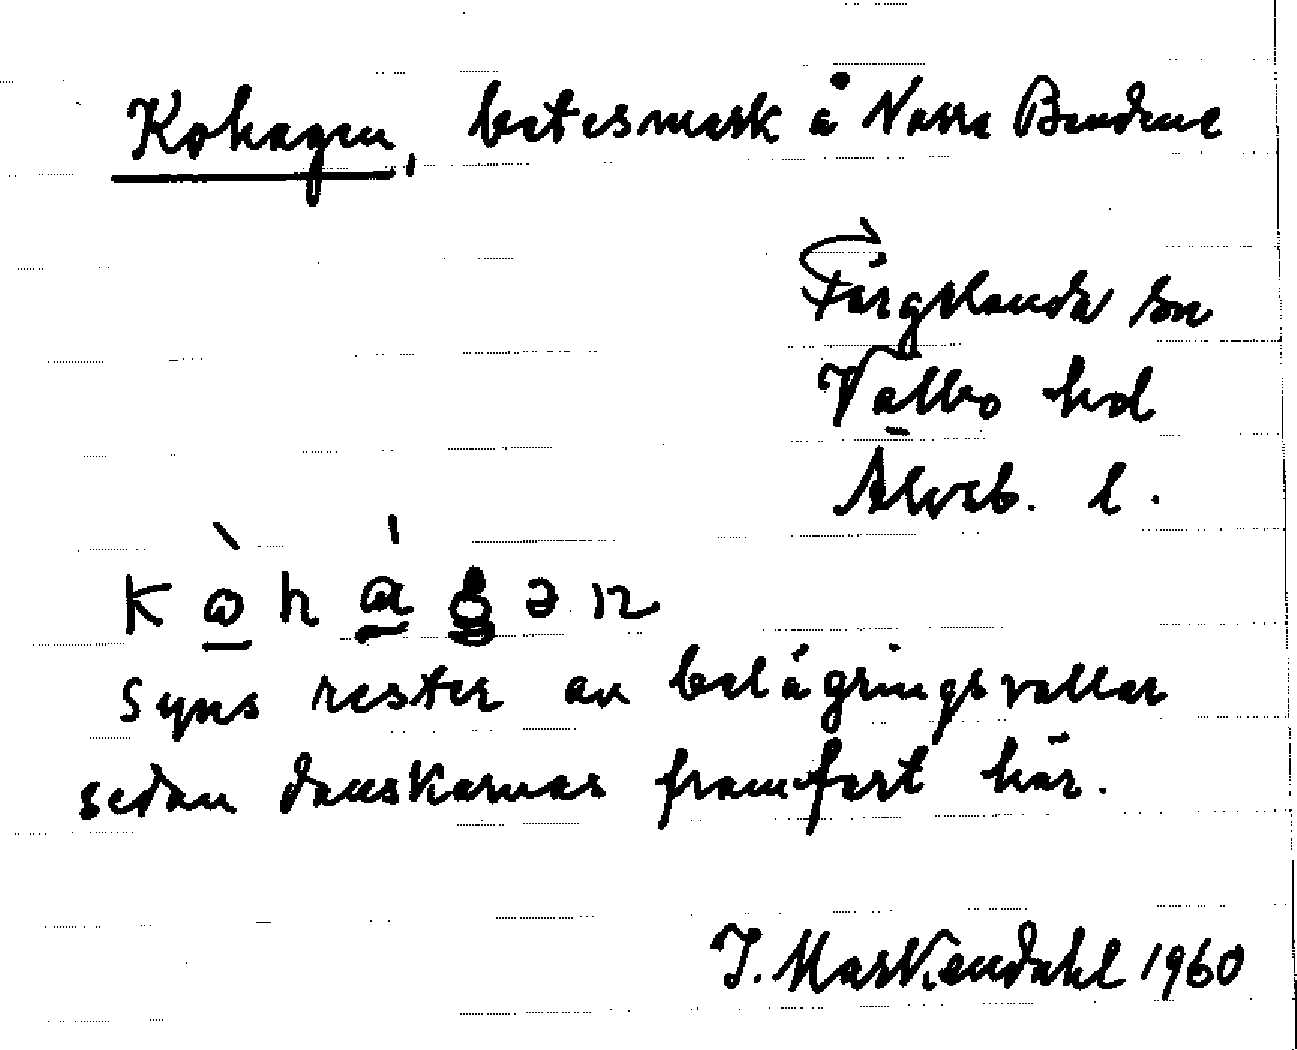 Kohagen, betesmark å Norra Bendene
Färgelanda sn
Valbo hd
Älvsb. l.
syns rester av belägringsvallar
sedan danskarnas framfart här.
J. Markendahl 1960